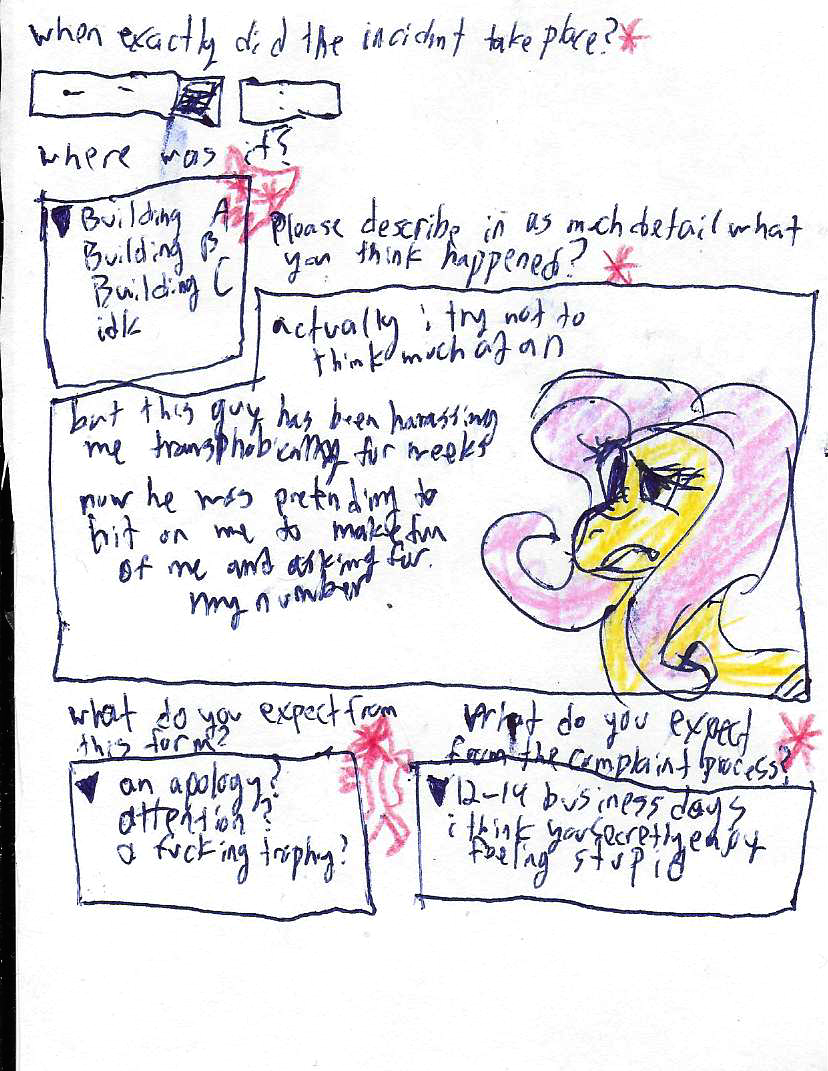 when exactly did the incidnt take place?*
- -
:
where was it?
*
Building A
Building B
Building C
idk
Please describe in as much detail what
you think happened? *
actually i try not to
think much at an
but this guy has been harassing
me transphobically for weeks
now he was pretending to
hit on me to make fun
of me and asking for
my number.
what do you expect from
this form?
*
an apology?
attention?
a fucking trophy?
What do you expect
from the complaint process?
*
12-14 business days
i think you secretly enjoy
feeling stupid